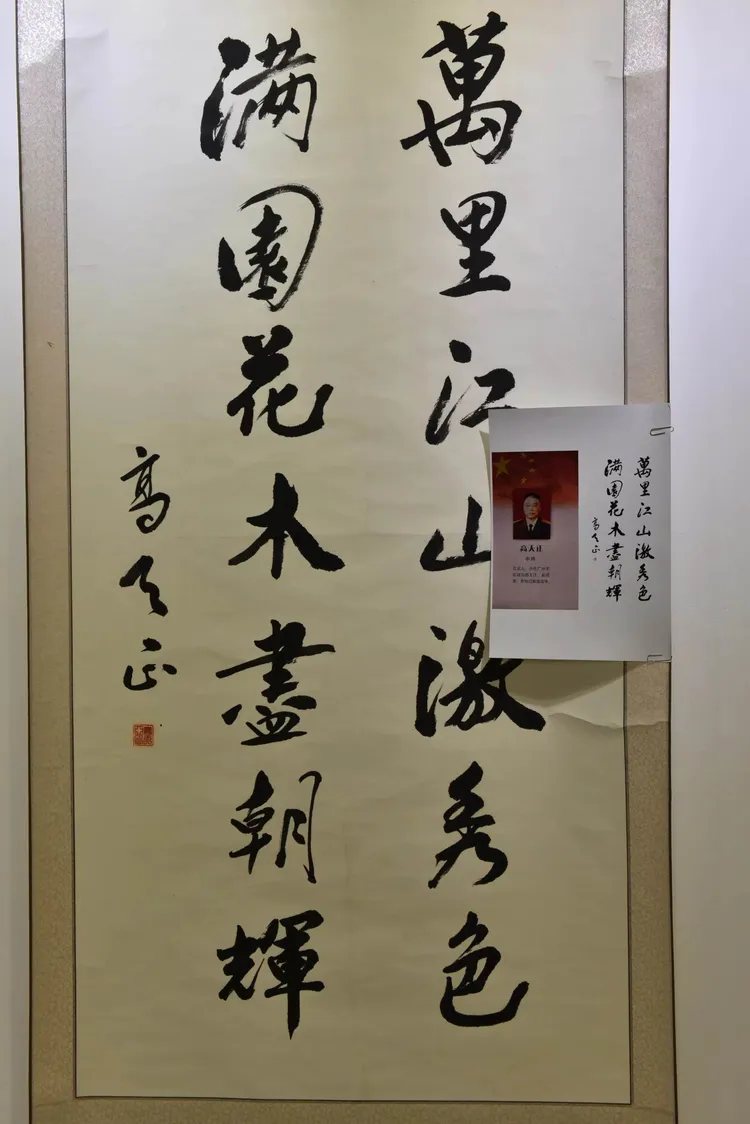 萬里江山激秀色
滿園花木盡朝輝
高天正
高天正
中將
萬里江山激秀色
滿園花木盡朝輝
高天正